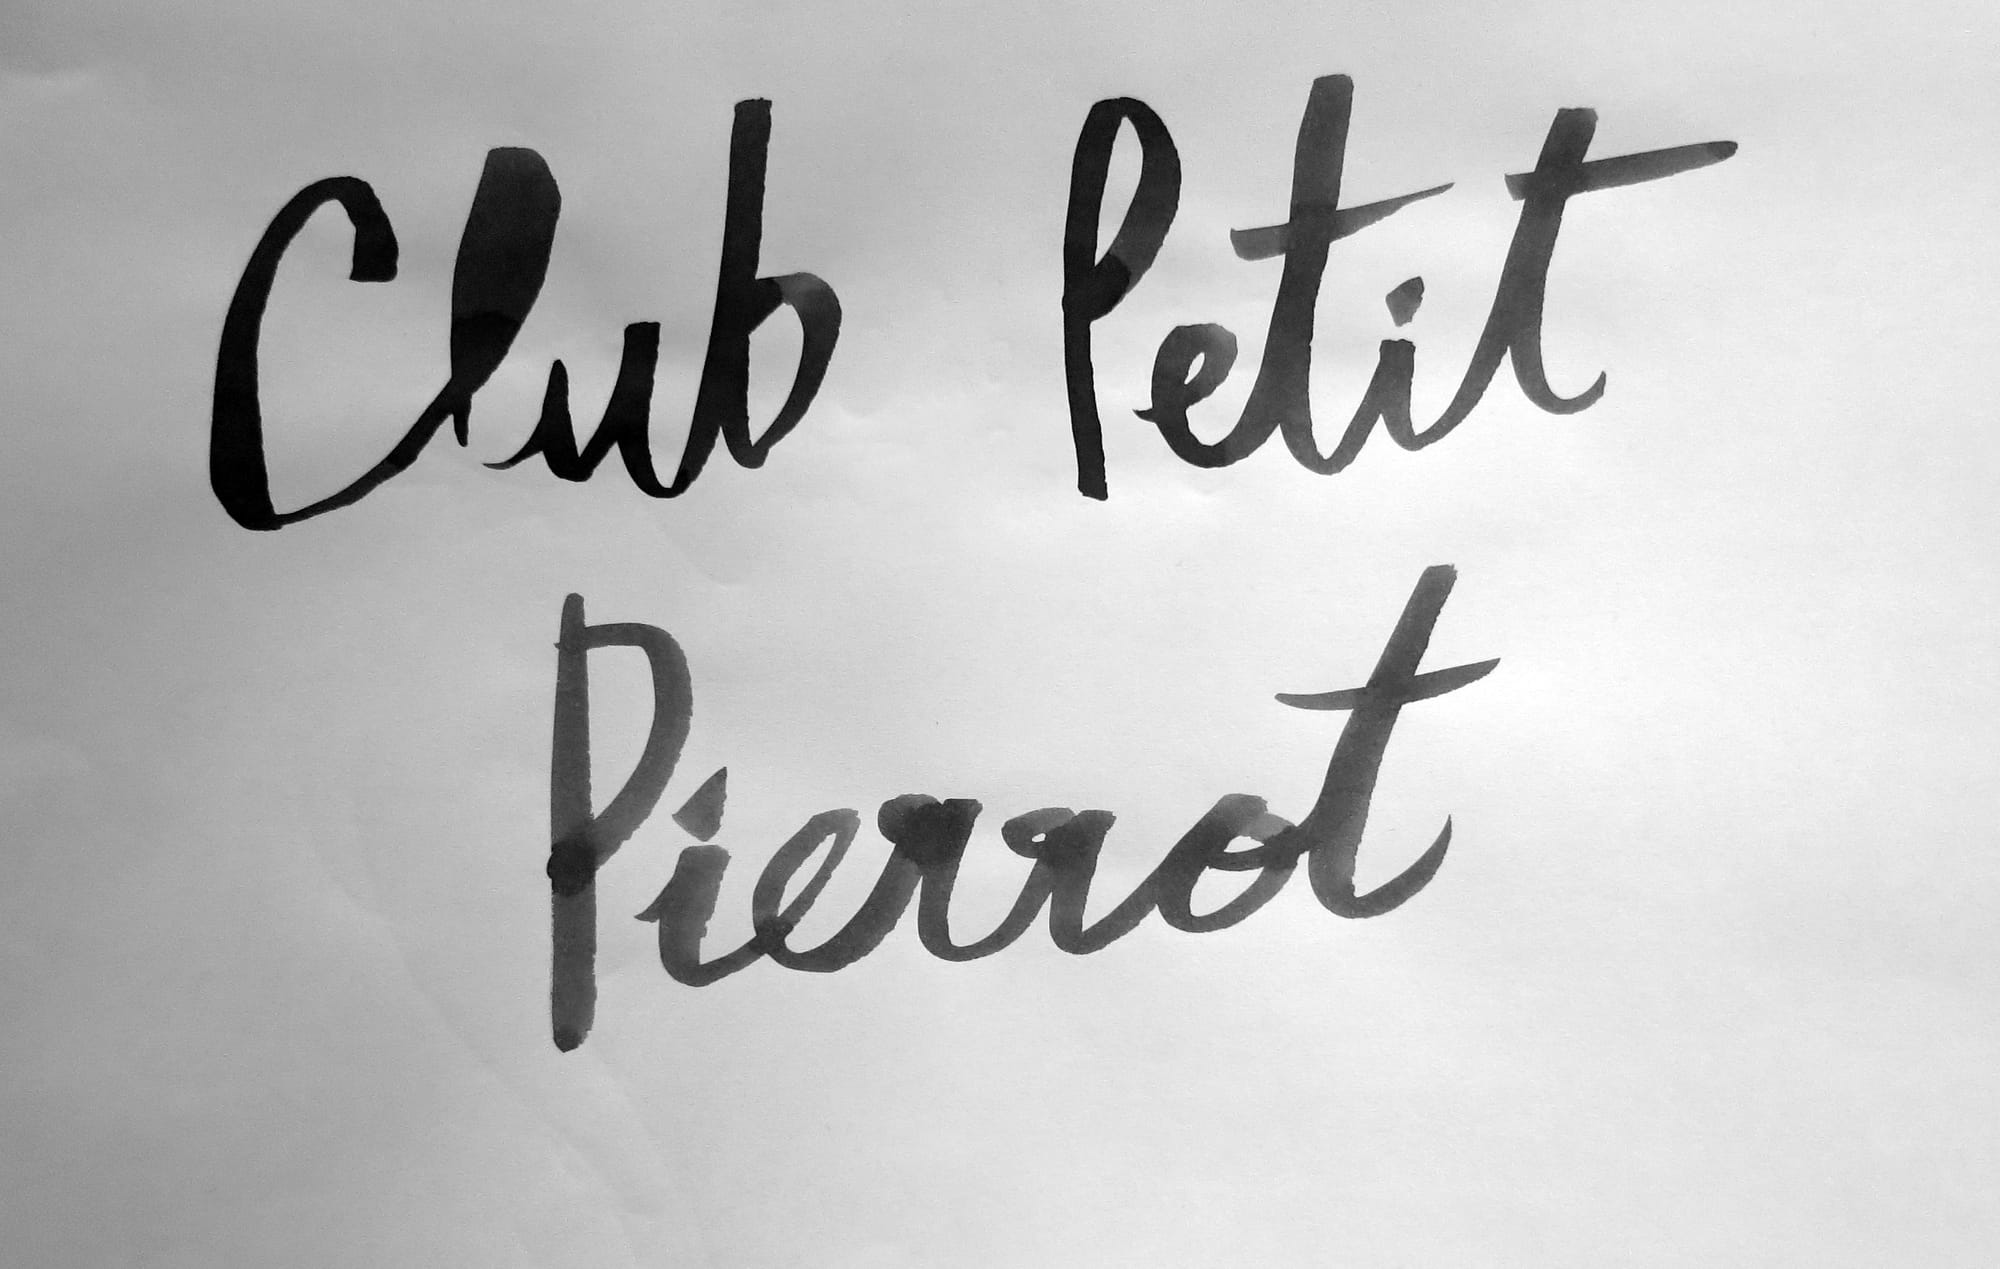 Club Petit
Pierrot